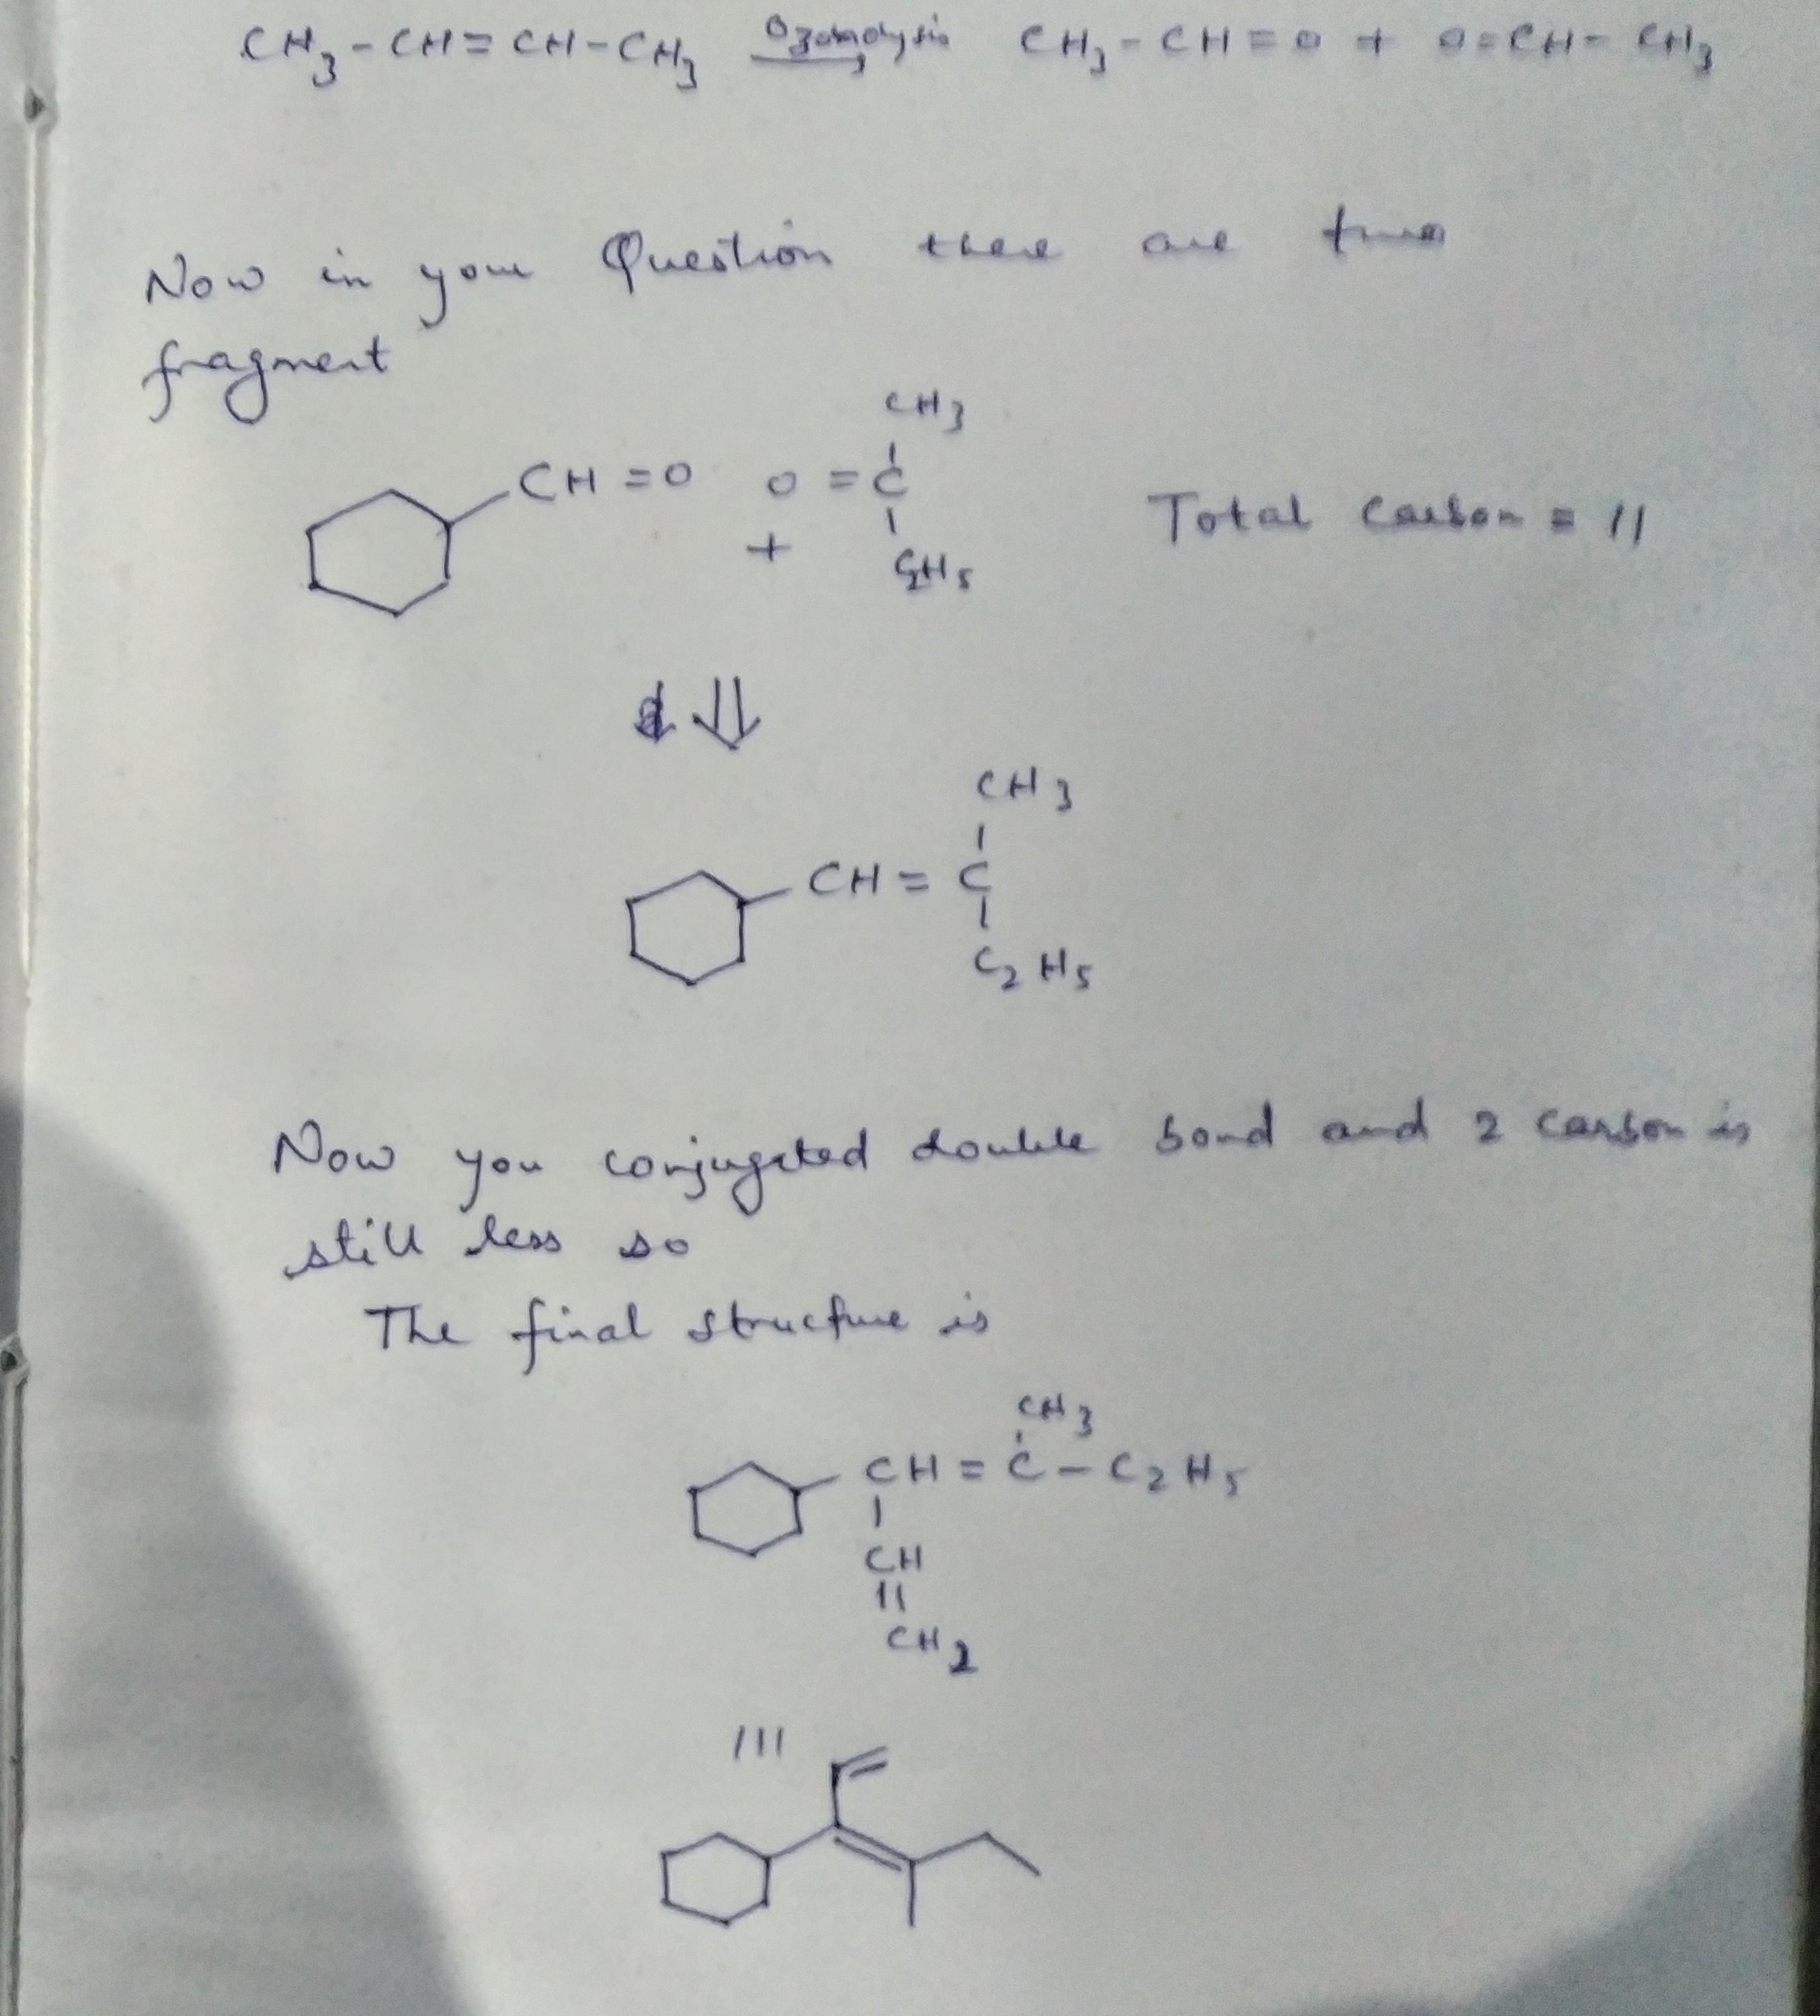 CH3-CH=CH-CH3 Ozonolysis CH3-CH=O + O=CH-CH3
Now in your Question there are
fragment
CH3
CH=O O=C Total Carbon = 11
+
C2H5
CH3
CH=C
C2H5
Now you conjugated double bond and 2 carbon is
still less so
The final structure is
CH3
CH=C-C2H5
CH
CH2